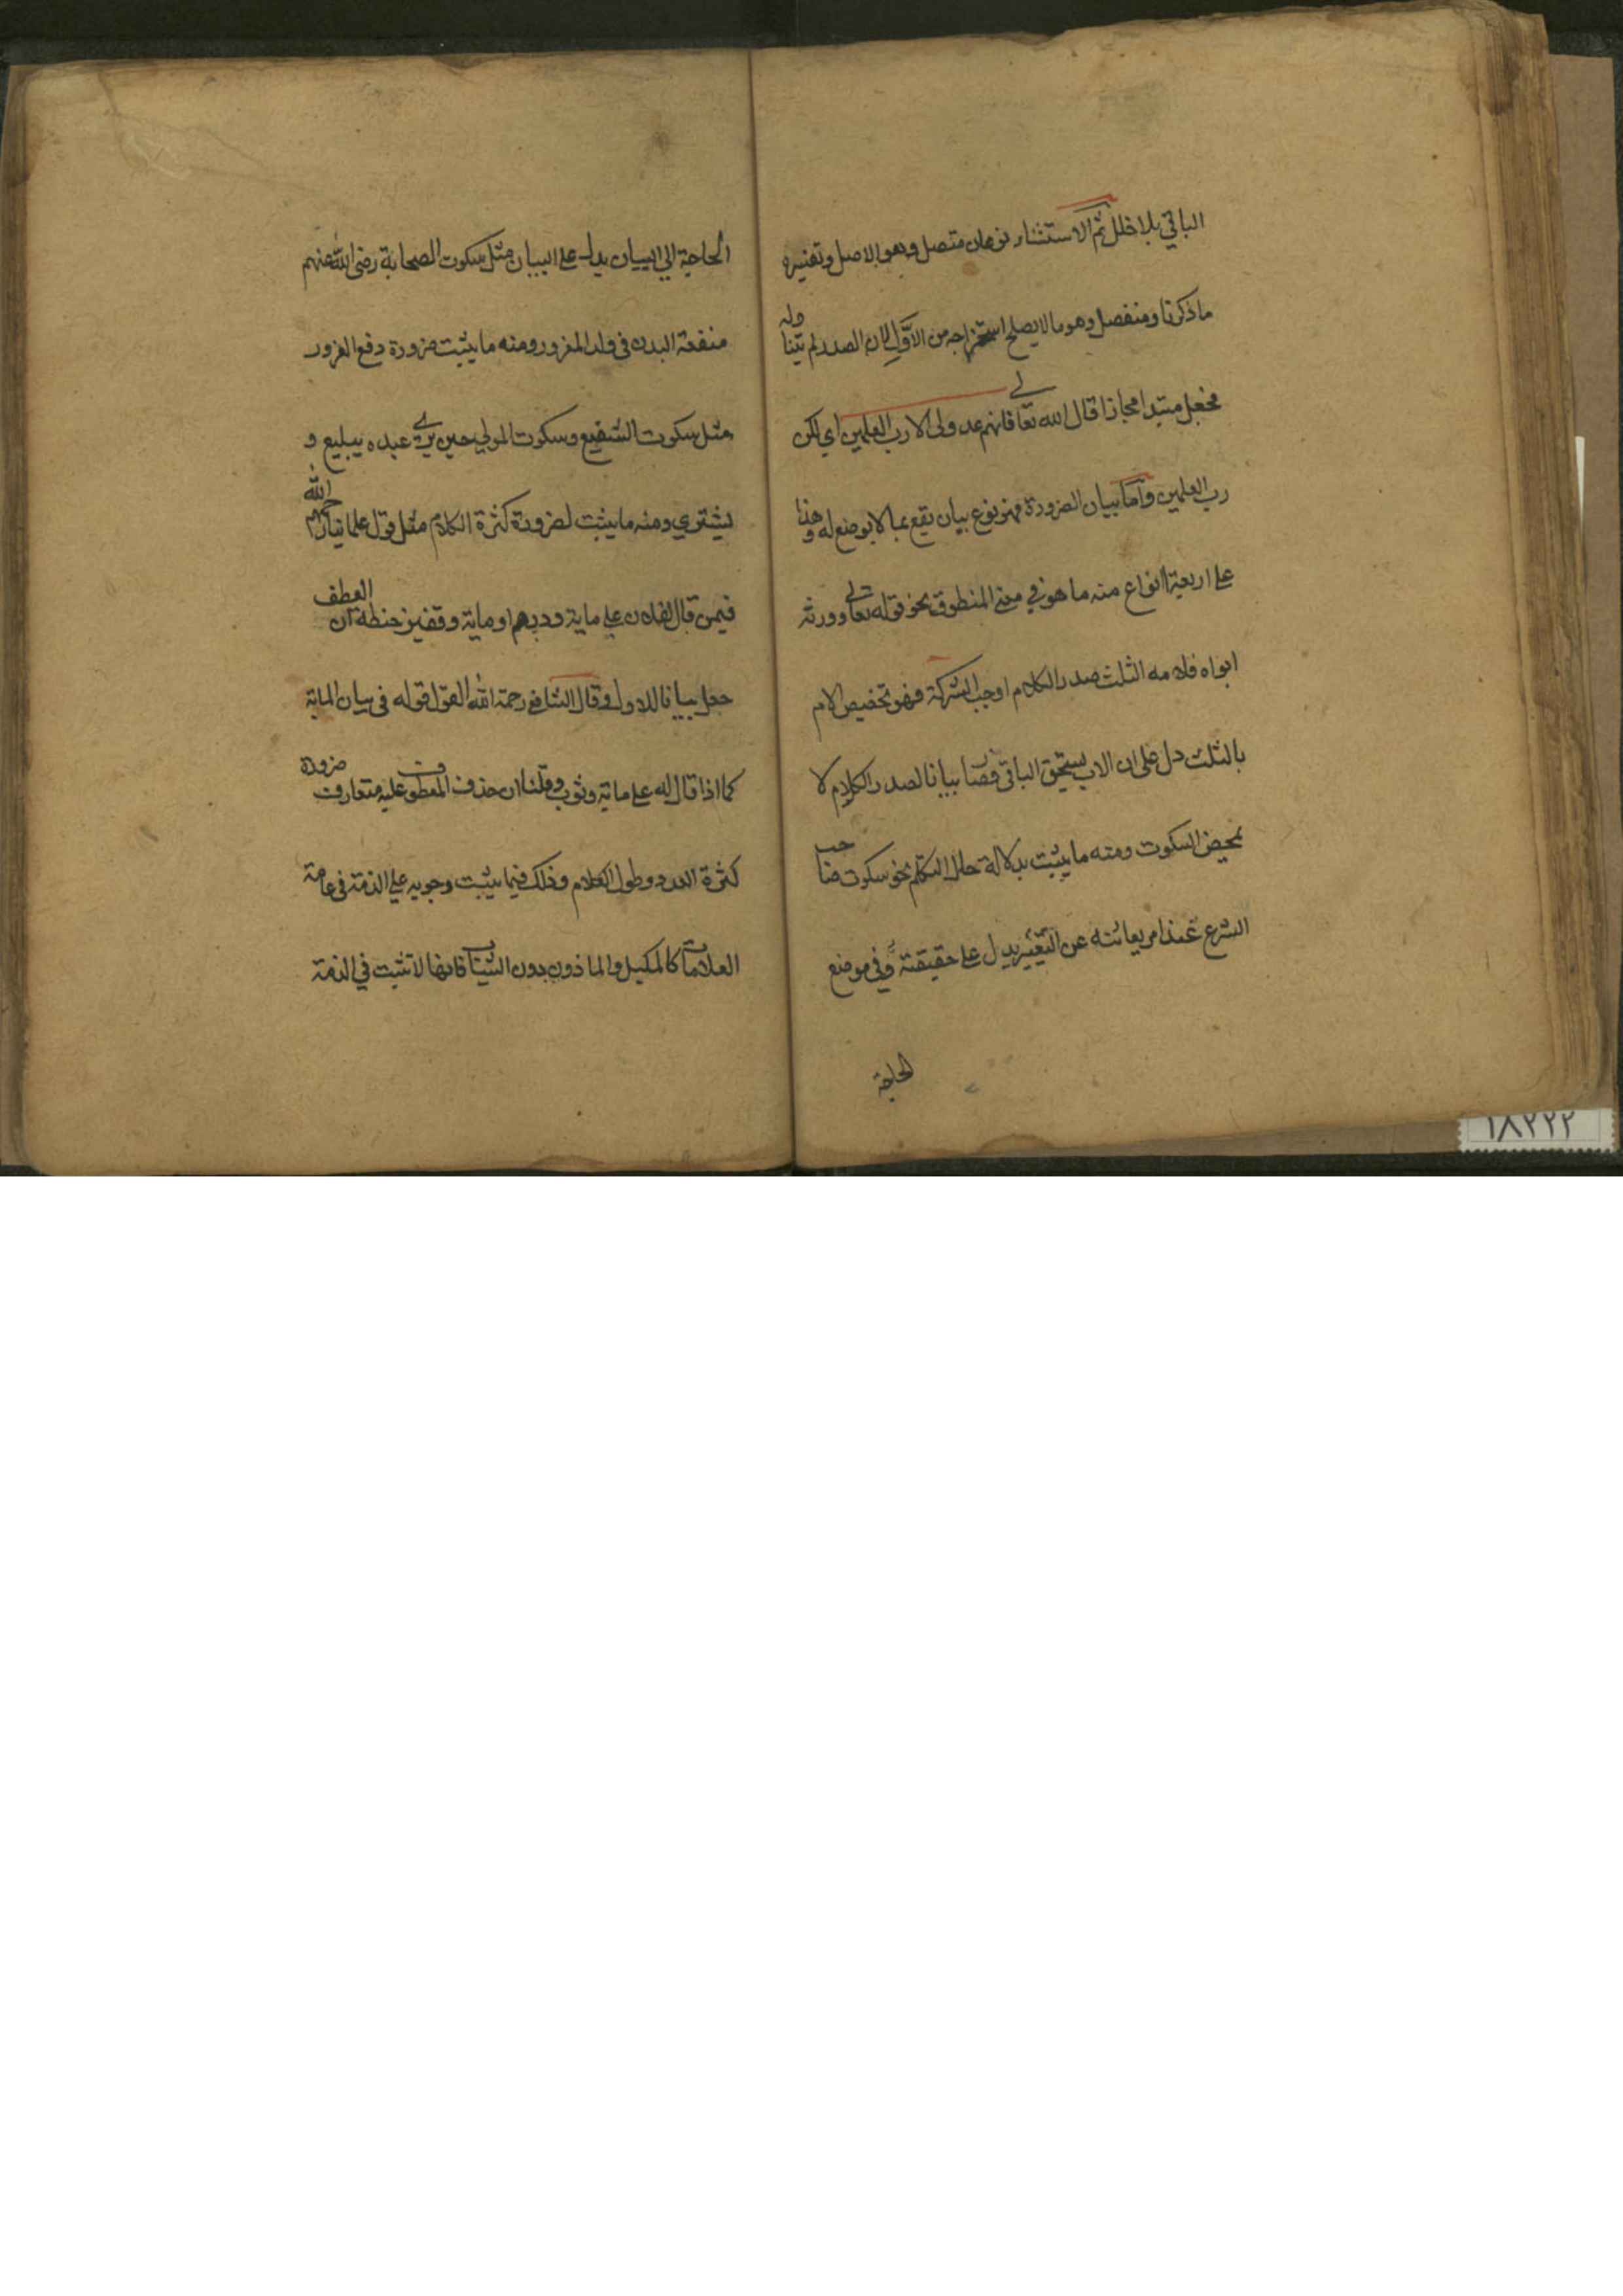 الباقي بلا خلل ثم الاستثناء نوعان متصل وهو الاصل وتفسيره
ما ذكرنا ومنفصل وهو ما لا يصلح استخراجه من الاول لان الصدر لم يتناوله
فجعل مبتدا مجازا قال الله تعالى فانهم عدو لى الا رب العلمين اي لكن
رب العلمين واما بيان الضرورة فهو نوع بيان يقع بما لا يوضع له وهذا
على اربعة انواع منه ما هو في معنى المنطوق نحو قوله تعالى وورثه
ابواه فلامه الثلث صدر الكلام اوجب الشركة فهو تخصيص الام
بالثلث دل على ان الاب يستحق الباقي فصار بيانا لصدر الكلام لا
بمحض السكوت ومنه ما يثبت بدلالة حال المتكلم نحو سكوت صاحب
الشرع عند امر يعاينه عن التغيير يدل على حقيقته وفي موضع
الحاجة
الحاجة الي البيان يدل على البيان مثل سكوت الصحابة رضى الله عنهم
منفعة البدن فى ولد المغرور ومنه ما يثبت ضرورة دفع الغرور
مثل سكوت الشفيع وسكوت المولى حين يرى عبده يبيع و
يشتري ومنه ما يثبت لضرورة كثرة الكلام مثل قول علمائنا رحمهم الله
فيمن قال لفلان على ماية ودرهم او ماية وقفيز حنطة ان العطف
جعل بيانا للاول وقال الشافعي رحمة الله القول قوله فى بيان الماية
كما اذا قال له على ماية وثوب وقلنا ان حذف المعطوف عليه متعارف ضرورة
كثرة العدد وطول الكلام وذلك فيما يثبت وجوبه على الذمة فى عامة
العلامات كالمكيل والماذون بدون الثياب فانها لا تثبت في الذمة
١٨٢٢٢